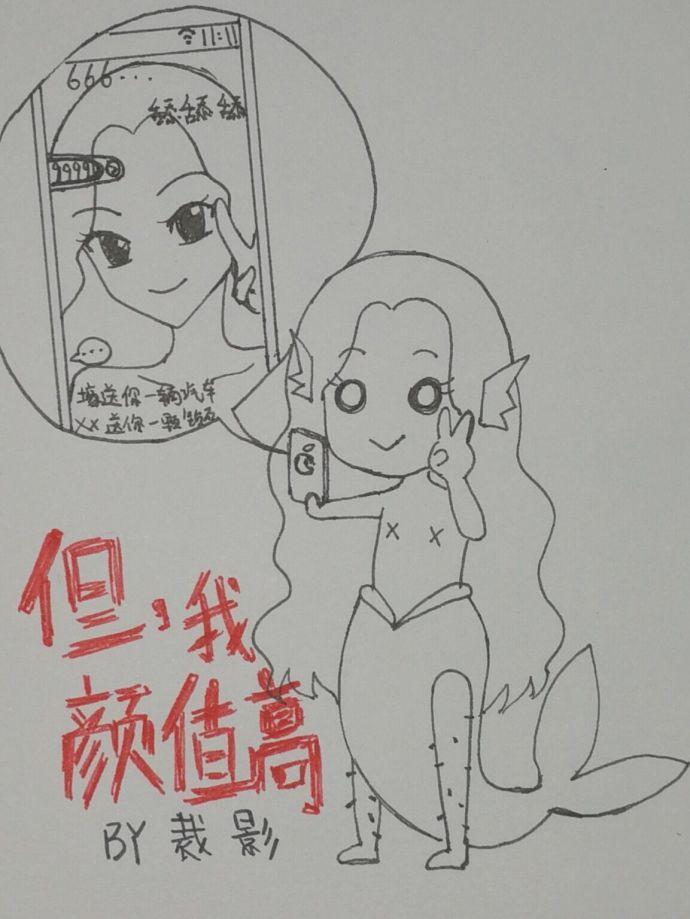 11:11
666...
舔舔舔
9999
...
壕送你一辆汽车
XX送你一颗钻石
但,我
颜值高
BY 裁影